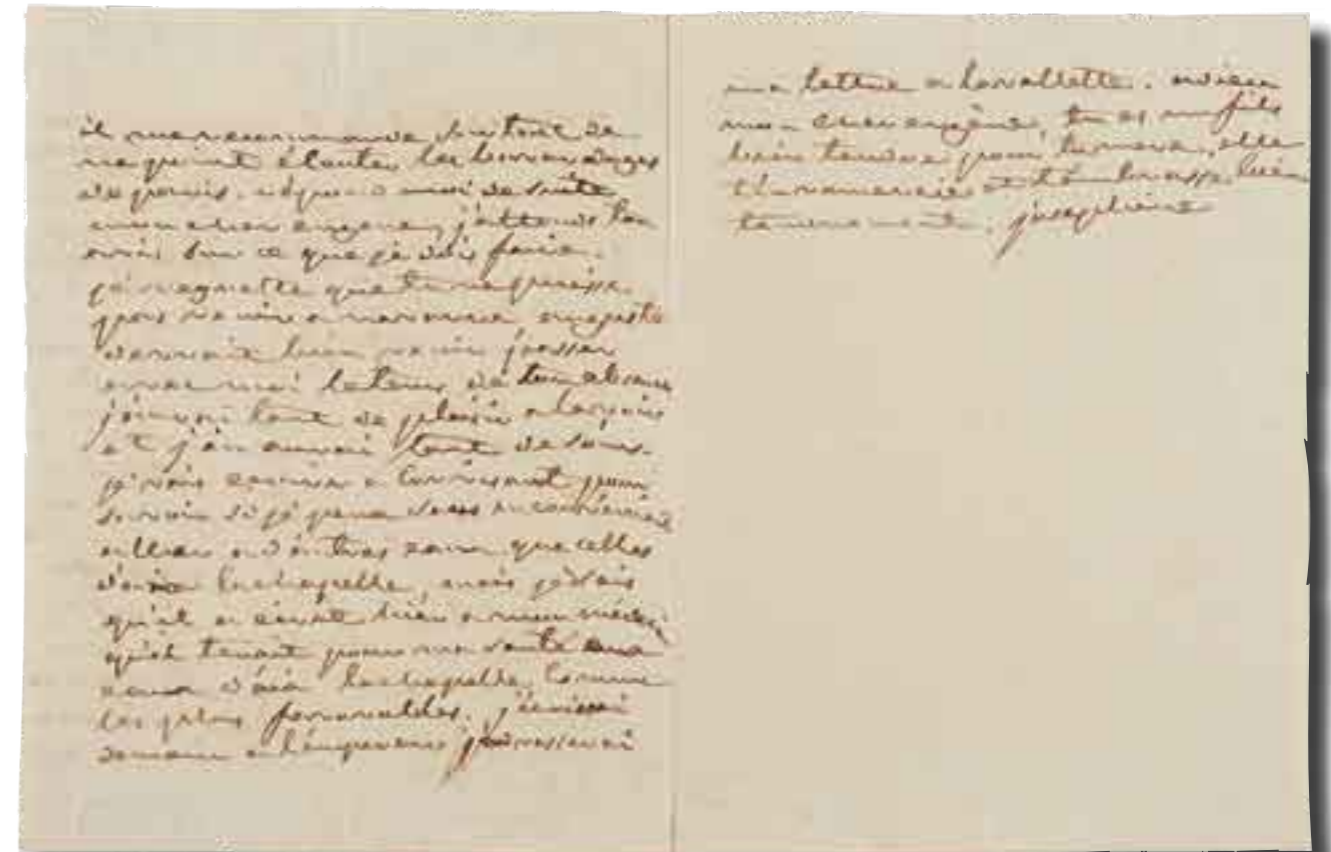 il me recommande surtout de
ne point écouter les bavardages
de paris. répond moi de suite
mon cher eugene, j'attends ton
avis sur ce que je dois faire.
je regrette que tu ne puisse
pas venir a navarre, auguste
devroit bien venir passer
avec moi le tems de ton absence
j'aurai tant de plaisir a la voir
et j'en aurai tant de soins.
je vais ecrire a corvisart pour
savoir si je peux sans inconvénient
aller a d'autres eaux que celles
d'aix lachapelle, mais je sais
qu'il a écrit hier a mon médecin
qu'il tenoit pour ma santé aux
eaux d'aix lachapelle, comme
les plus favorables. j'écrirai
demain a l'empereur j'adresserai
ma lettre a lavallette. adieu
mon cher eugène, tu es un fils
bien tendre pour ta mere, elle
t'en remercie et t'embrasse bien
tendrement. josephine